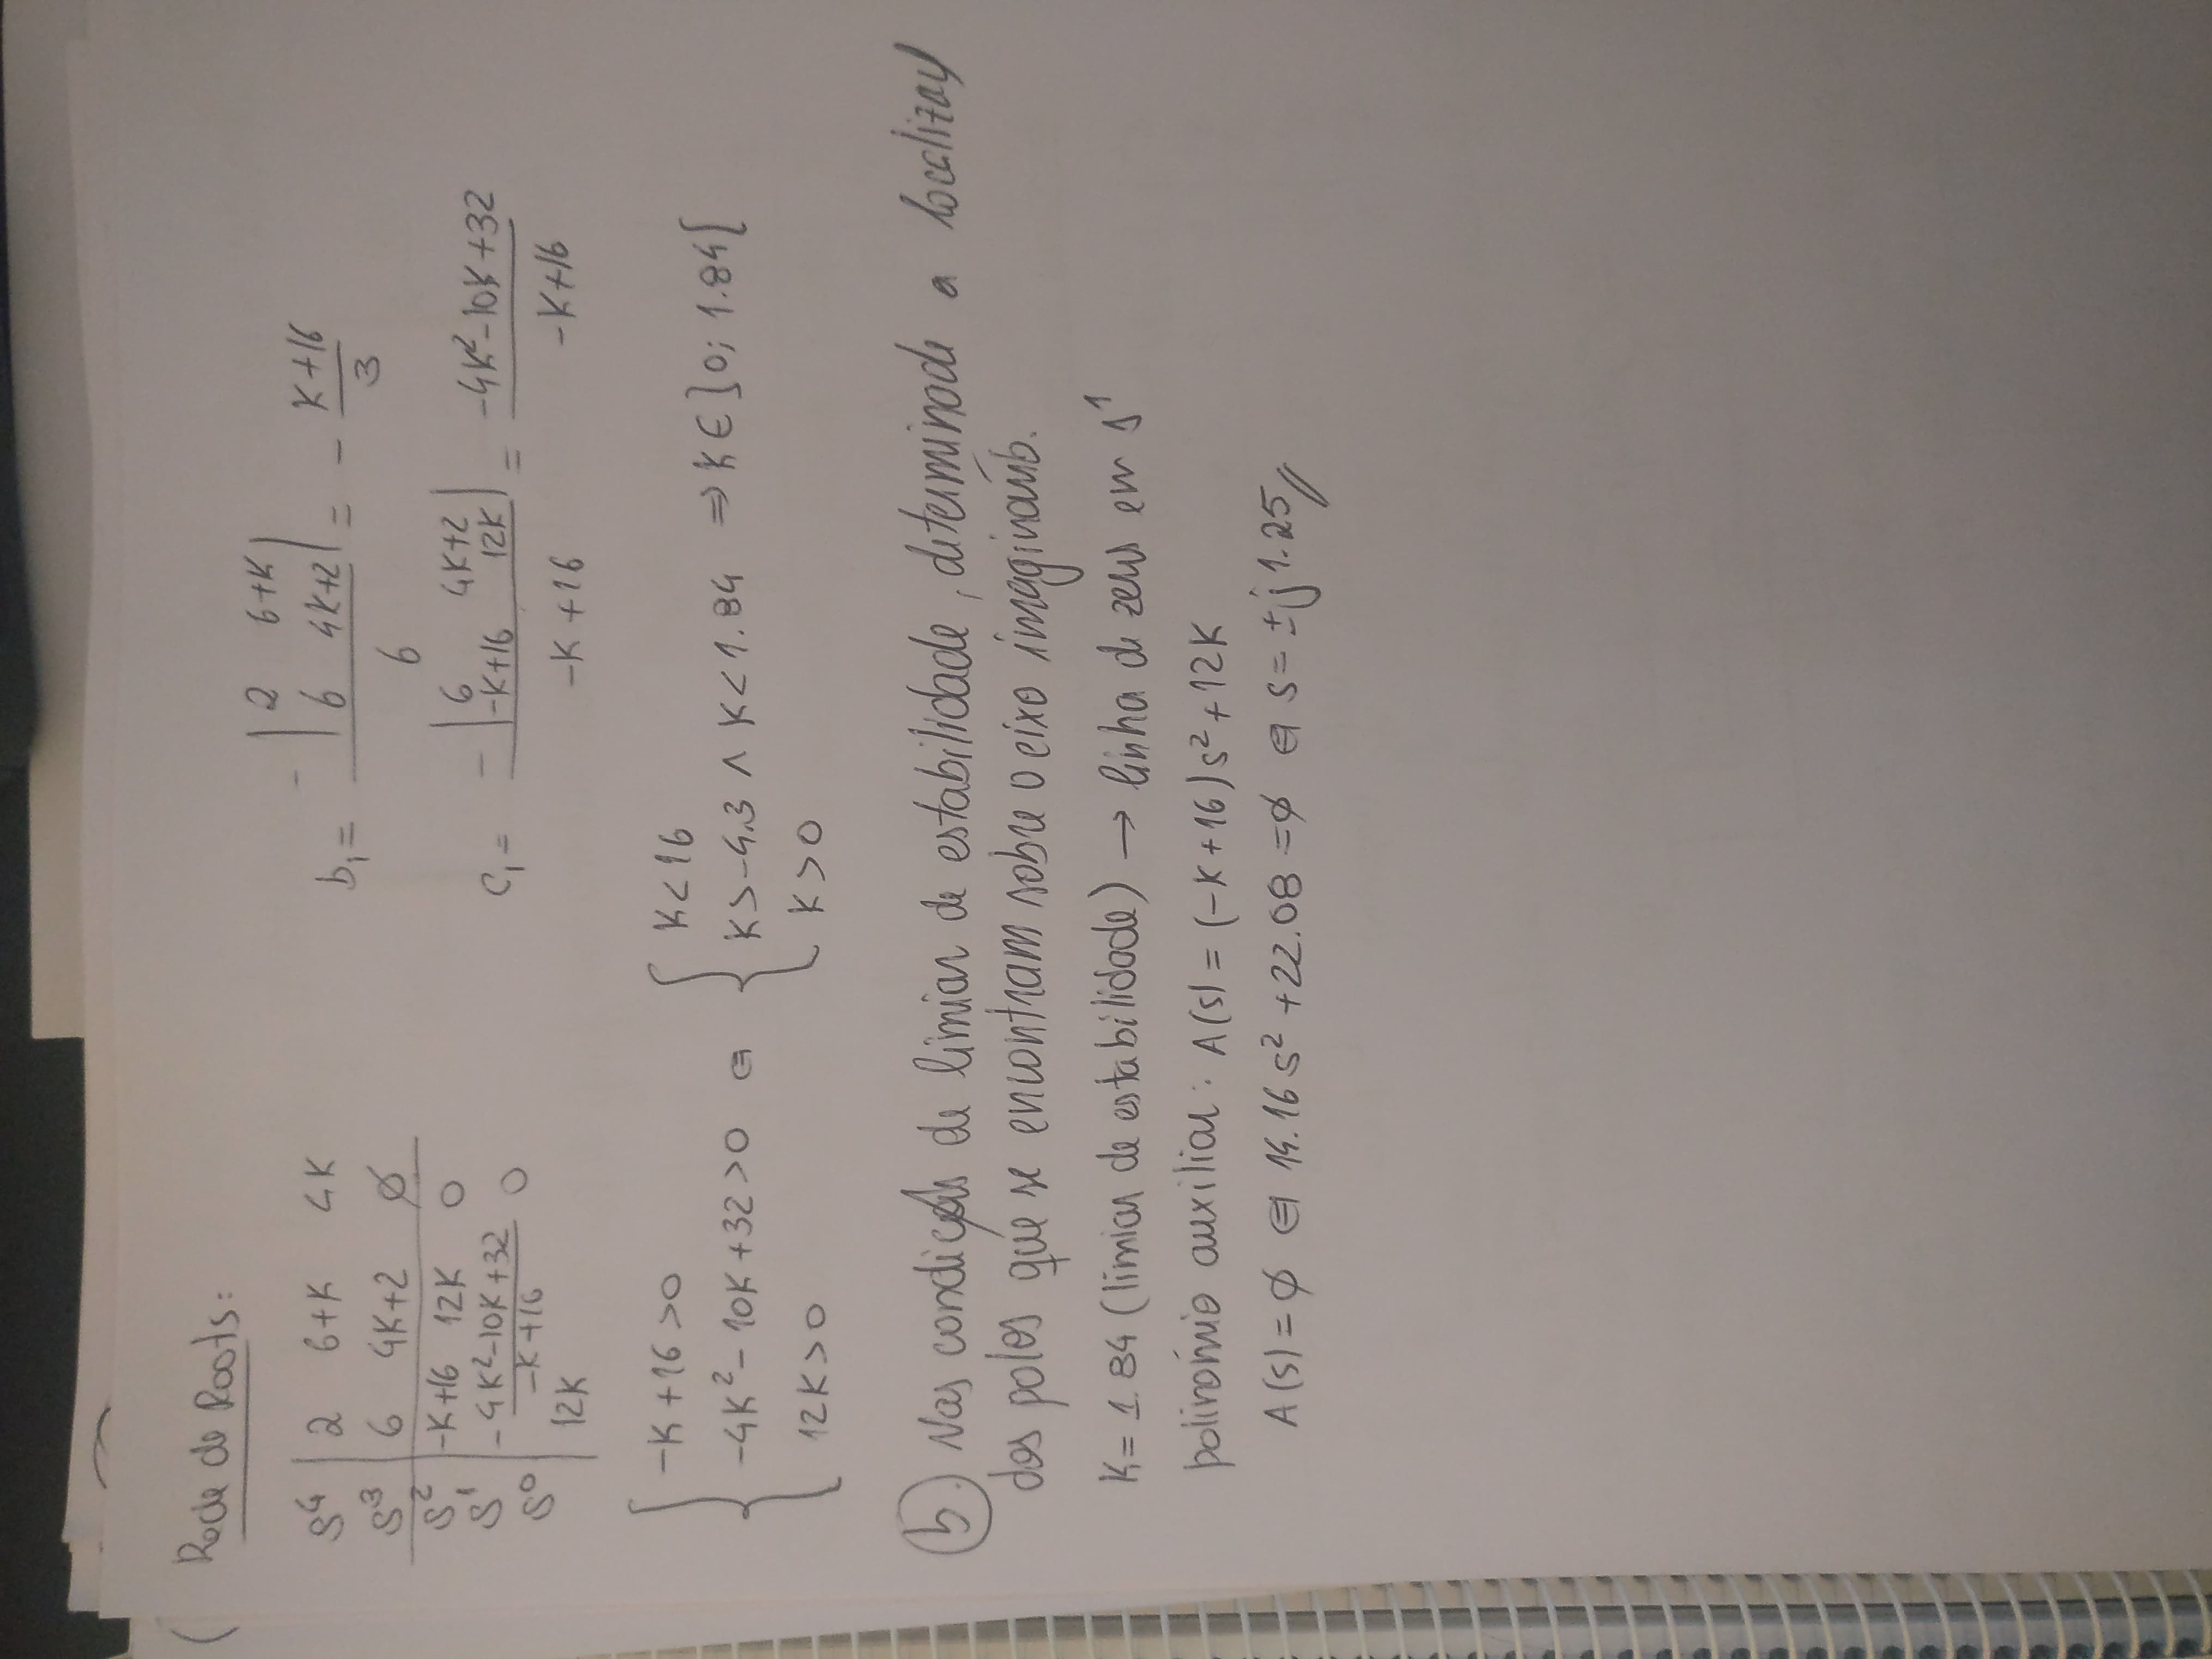 Rede de Roots:
S⁴ | 2 6+K 4K
S³ | 6 4K+2 ∅
S² | -K+16 12K 0
S¹ | - 4K²-10K+32 / -K+16 0
S⁰ | 12K
b₁ = - | 2 6+K ; 6 4K+2 | / 6 = - K+16 / 3
C₁ = - | 6 4K+2 ; -K+16 12K | / -K+16 = -4K²-10K+32 / -K+16
{ -K+16>0 ⇔ { K<16
-4K²-10K+32>0 K>-4.3 ∧ K<1.84 ⇒ K∈]0; 1.84[
12K>0 K>0
b) Nas condições de limiar de estabilidade, determinade a
dos polos que se encontram sobre o eixo imaginário.
K= 1.84 (limiar de estabilidade) → linha de zeros em s¹
polinómio auxiliar: A(s) = (-K+16)s²+12K
A(s)=∅ ⇔ 14.16s²+22.08=∅ ⇔ s=±j1.25//